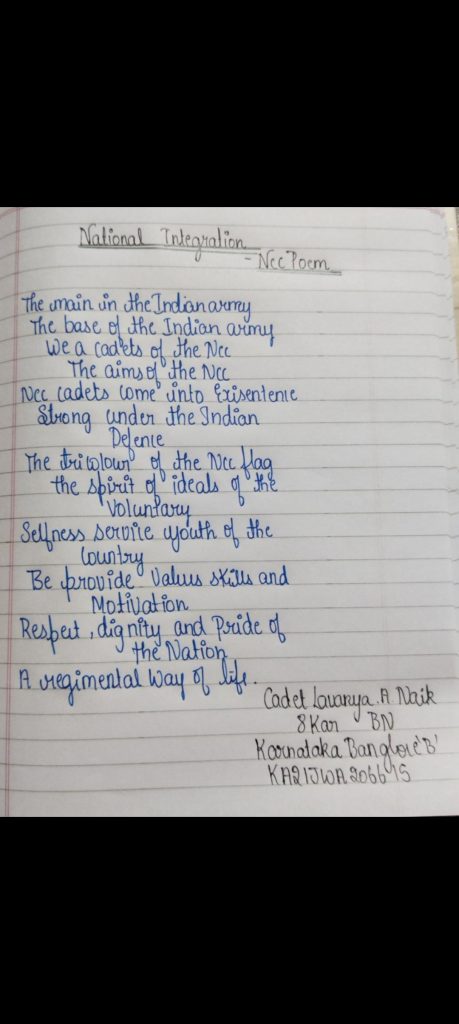 National Integration
- Ncc Poem
The main in the Indian army
The base of the Indian army
We a cadets of the Ncc
The aims of the Ncc
Ncc cadets come into Exisentenie
Strong under the Indian
Defence
The tricolour of the Ncc flag
the spirit of ideals of the
Voluntary
Selfness service youth of the
Country
Be provide Values skills and
Motivation
Respect, dignity and Pride of
the Nation
A regimental way of life.
Cadet Lavanya. A. Naik
8 Kar BN
Karnataka Banglore 'B'